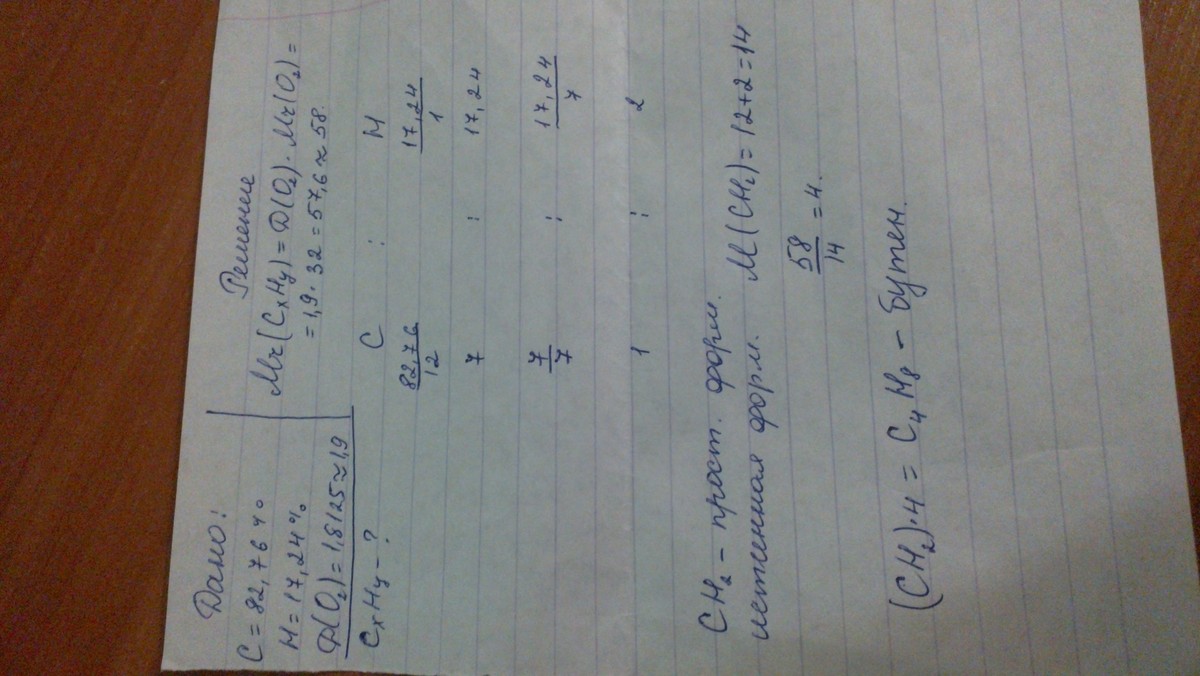 Дано:
C = 82,76%
H = 17,24%
D(O₂) = 1,8125 ≈ 1,9
CxHy - ?
Решение
Mr(CxHy) = D(O₂) · Mr(O₂) =
= 1,9 · 32 = 57,6 ≈ 58.
C : H
82,76/12 17,24/1
7 : 17,24
7/7 : 17,24/7
1 : 2
CH₂ - прост. форм.
истенная форм. M(CH₂) = 12+2 = 14
58/14 = 4.
(CH₂)·4 = C₄H₈ - бутен.